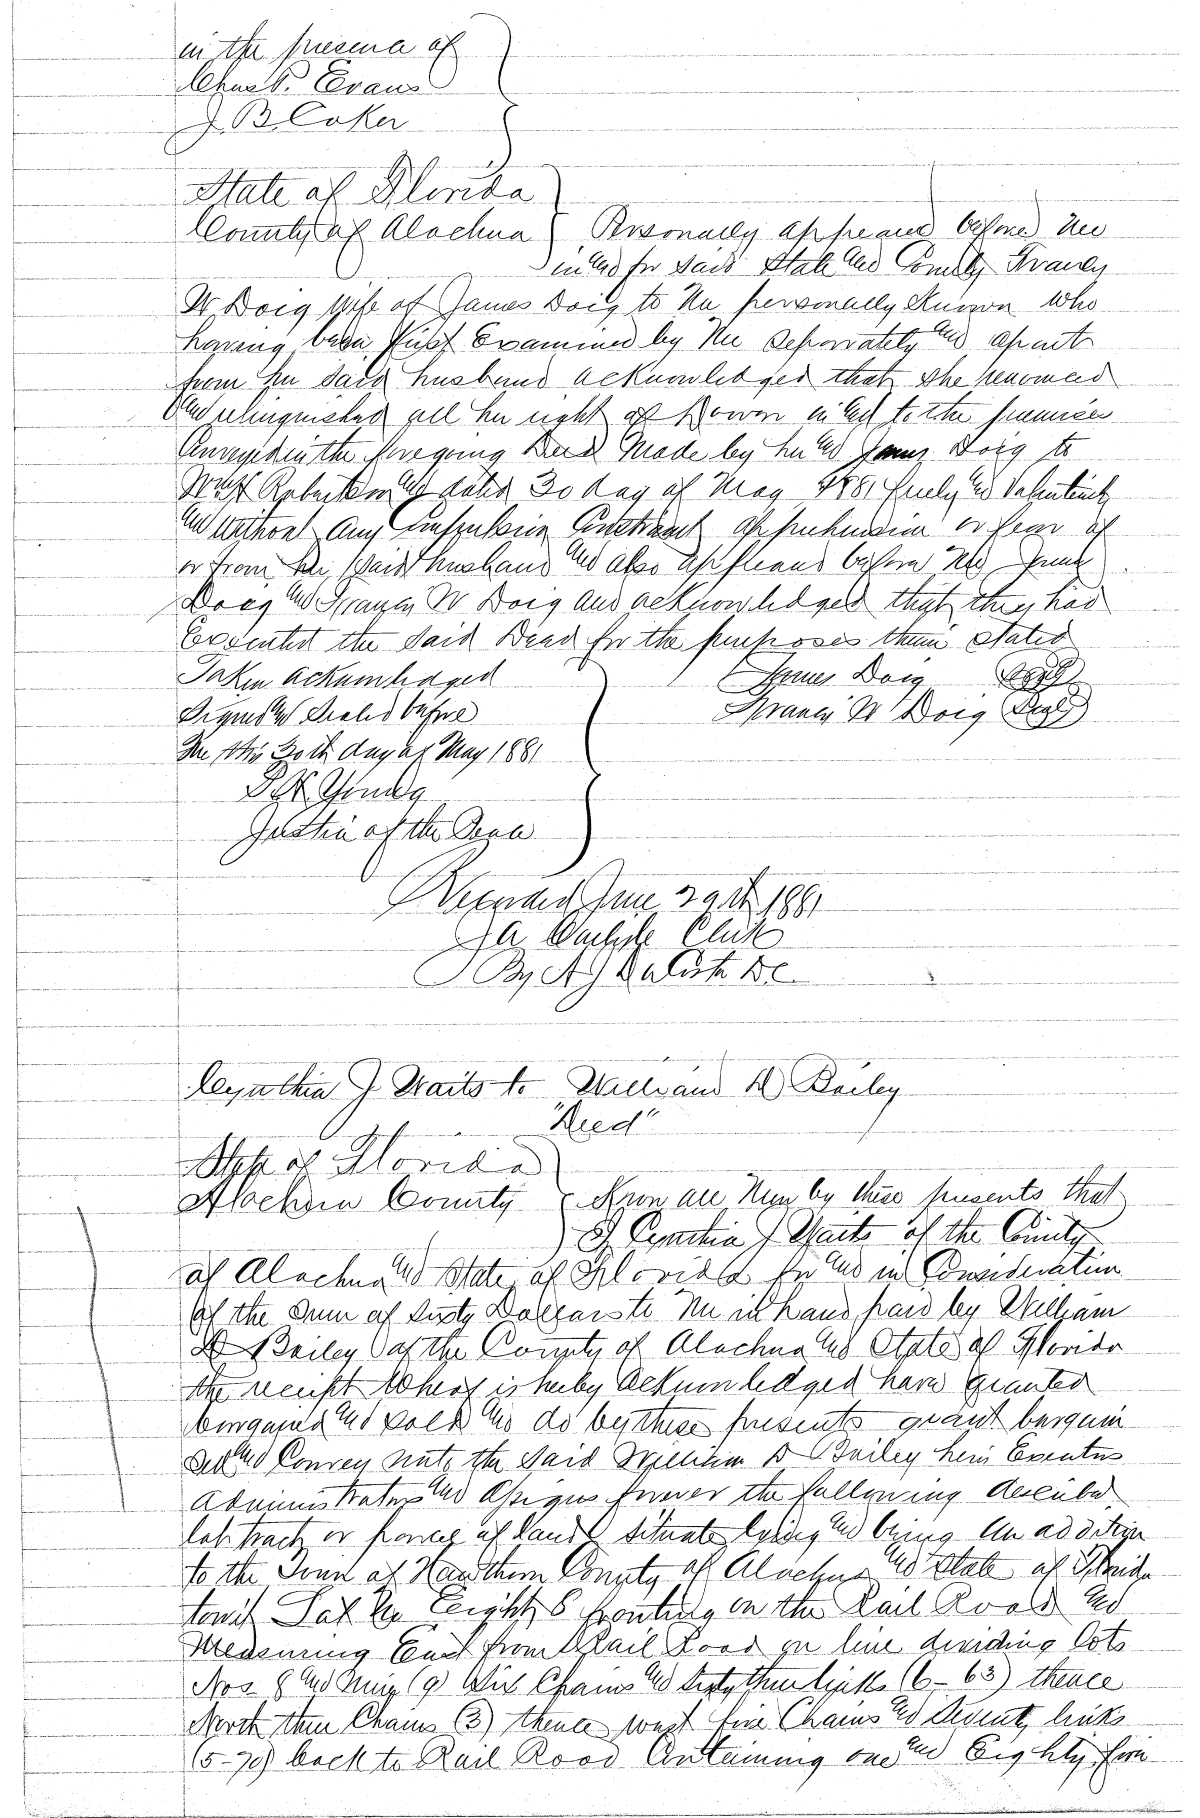 in the presence of
Chas P. Evans
J. B. Coker
State of Florida
County of Alachua } Personally appeared before me
in and for said State and County Frances
W Doig wife of James Doig to me personally known who
having been first Examined by me seperately and apart
from her said husband acknowledged that she renounced
and relinquished all her right of Dower in and to the premises
Conveyed in the foregoing Deed made by her and James Doig to
Robertson and dated 30 day of May 1881 freely and
and without any Compulsion Constraint apprehension or fear of
or from her said husband and also appeared before me James
Doig and Frances W Doig and acknowledged that they had
Executed the said Deed for the purposes therein stated
Taken acknowledged
James Doig (Seal)
Signed and Sealed before
Frances W Doig (Seal)
me this 30th day of May 1881
Young
Justice of the Peace
Recorded June 29th 1881
J A Carlisle Clerk
By A J DaCosta D.C.
Cynthia J Waits to William D Bailey
"Deed"
State of Florida
Alachua County } Know all Men by these presents that
I Cynthia J Waits of the County
of Alachua and State of Florida for and in Consideration
of the Sum of Sixty Dollars to me in hand paid by William
D Bailey of the County of Alachua and State of Florida
the receipt whereof is hereby acknowledged have granted
bargained and sold and do by these presents grant bargain
sell and Convey unto the said William D Bailey heirs Executors
Administrators and Assigns forever the following described
lot tract or parcel of land situate lying and being an addition
to the Town of Hawthorn County of Alachua and State of Florida
towit Lot No Eight 8 fronting on the Rail Road and
Measuring East from Rail Road on line dividing lots
Nos 8 and Nine (9) Six Chains and Sixty three links (6-63) thence
North three Chains (3) thence west five Chains and Seventy links
(5-70) back to Rail Road Containing one and Eighty five